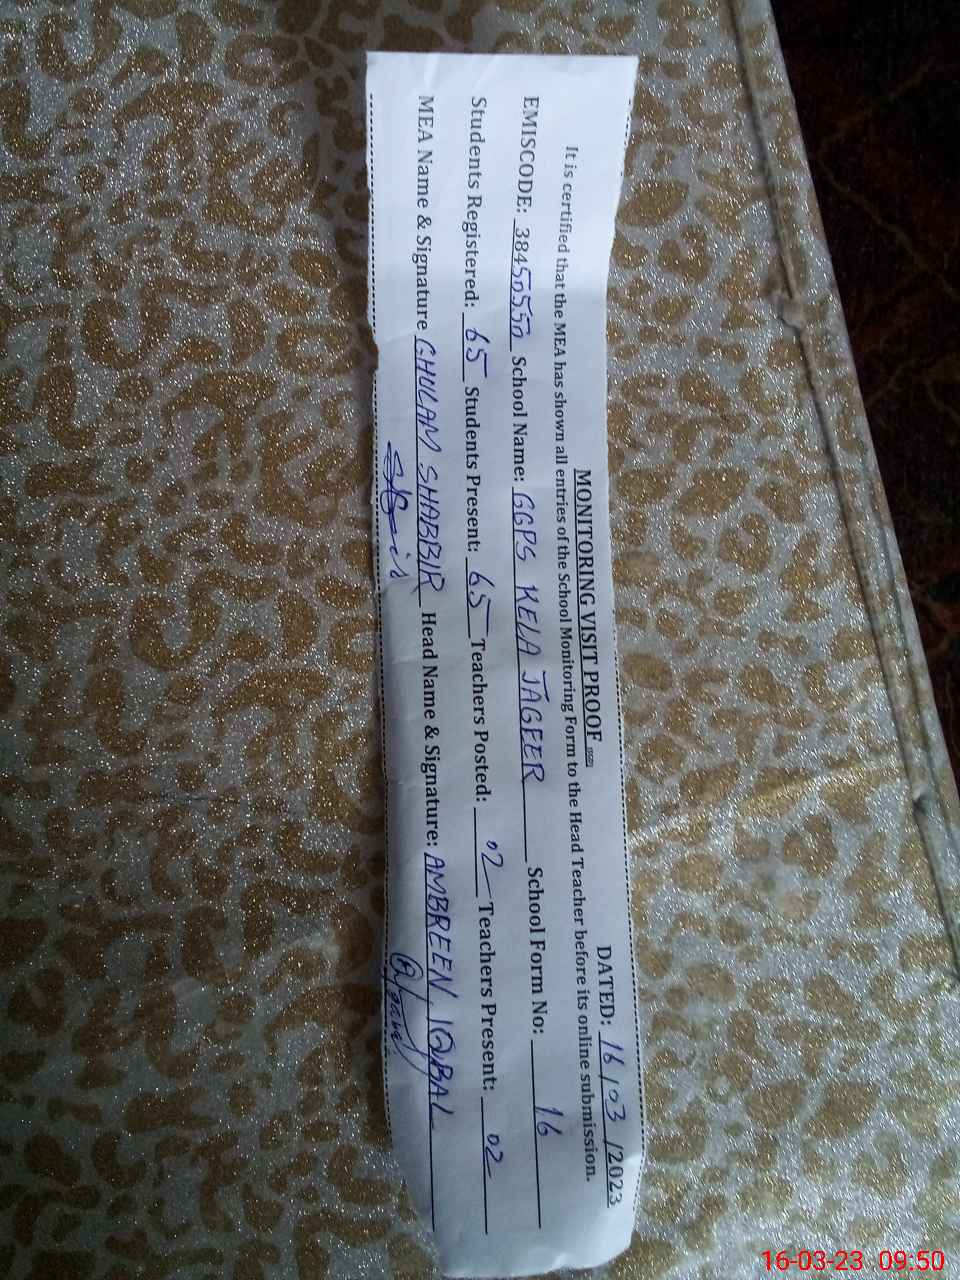 MONITORING VISIT PROOF
DATED: 16/03/2023
It is certified that the MEA has shown all entries of the School Monitoring Form to the Head Teacher before its online submission.
EMISCODE: 38450550 School Name: GGPS KELA JAGEER School Form No: 16
Students Registered: 65 Students Present: 65 Teachers Posted: 02 Teachers Present: 02
MEA Name & Signature GHULAM SHABBIR Head Name & Signature: AMBREEN IQBAL
16-03-23 09:50